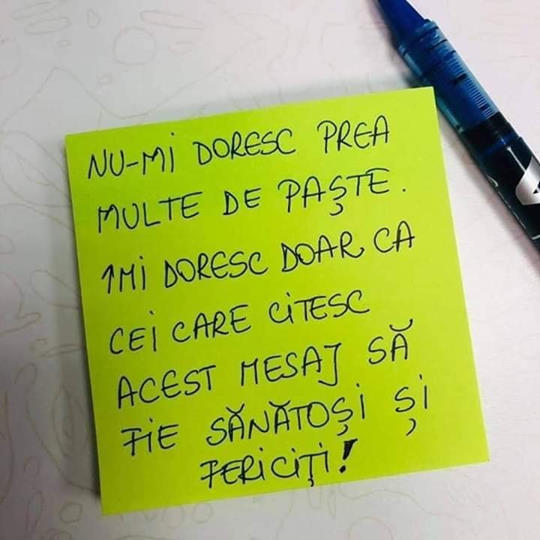 NU-Mi DORESC PREA
MULTE DE PAȘTE.
ÎMi DORESC DOAR CA
CEi CARE CiTESC
ACEST MESAJ SĂ
FiE SĂNĂTOȘi Și
FERiCiȚi!